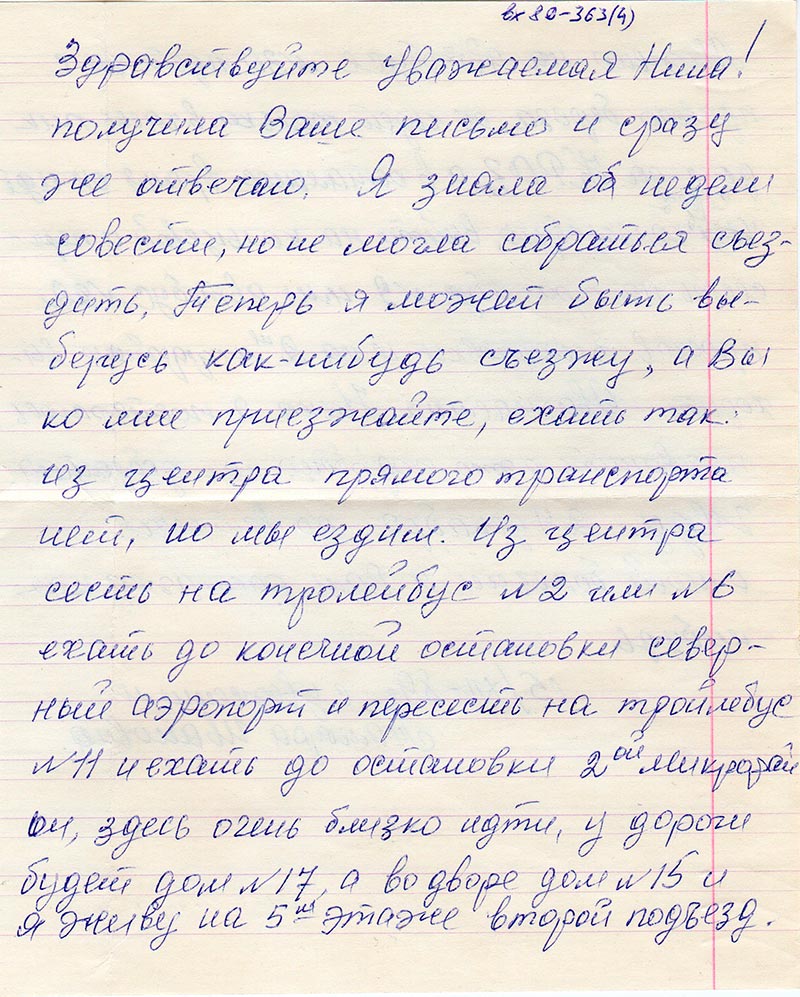 вх 80-363(4)
Здравствуйте Уважаемая Нина!
получила Ваше письмо и сразу
же отвечаю. Я знала об недели
совести, но не могла собраться съез-
дить, Теперь я может быть вы-
берусь как-нибудь съезжу, а Вы
ко мне приезжайте, ехать так:
из центра прямого транспорта
нет, но мы ездим. Из центра
сесть на тролейбус №2 или №6
ехать до конечной остановки север-
ный аэропорт и пересесть на тройлебус
№11 и ехать до остановки 2ой микрорай
он, здесь очень близко идти, у дороги
будет дом №17, а во дворе дом №15 и
я живу на 5м этаже второй подъезд.